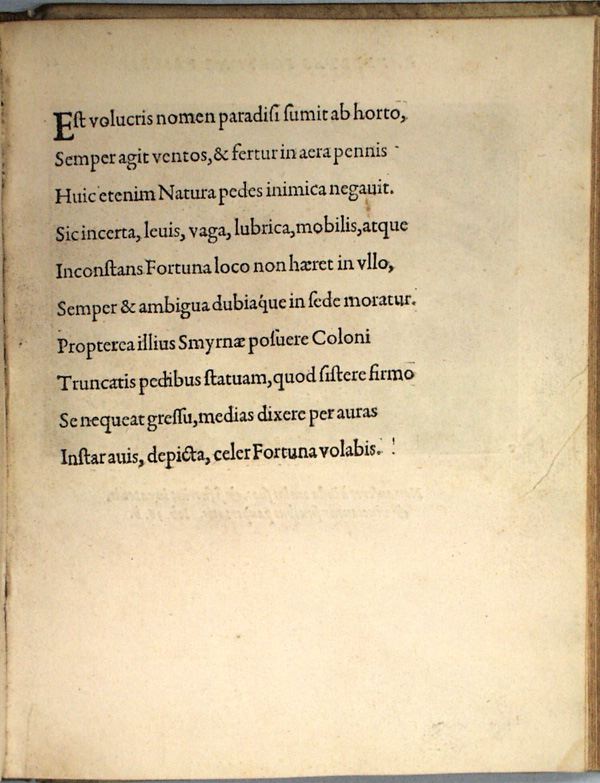 Est volucris nomen paradisi sumit ab horto,
Semper agit ventos, & fertur in aera pennis
Huic etenim Natura pedes inimica negauit.
Sic incerta, leuis, vaga, lubrica, mobilis, atque
Inconstans Fortuna loco non hæret in vllo,
Semper & ambigua dubiáque in sede moratur.
Propterea illius Smyrnæ posuere Coloni
Truncatis pedibus statuam, quod sistere firmo
Se nequeat gressu, medias dixere per auras
Instar auis, depicta, celer Fortuna volabis.